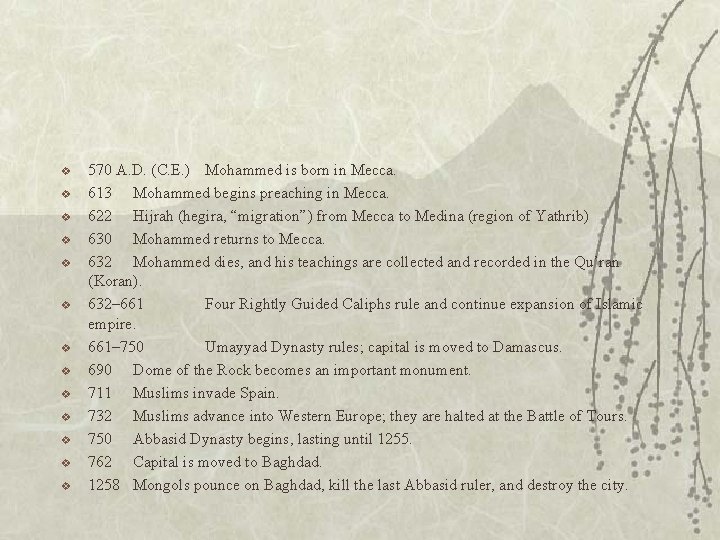 570 A.D. (C.E.) Mohammed is born in Mecca.
613 Mohammed begins preaching in Mecca.
622 Hijrah (hegira, “migration”) from Mecca to Medina (region of Yathrib)
630 Mohammed returns to Mecca.
632 Mohammed dies, and his teachings are collected and recorded in the Qu’ran
(Koran).
632–661 Four Rightly Guided Caliphs rule and continue expansion of Islamic
empire.
661–750 Umayyad Dynasty rules; capital is moved to Damascus.
690 Dome of the Rock becomes an important monument.
711 Muslims invade Spain.
732 Muslims advance into Western Europe; they are halted at the Battle of Tours.
750 Abbasid Dynasty begins, lasting until 1255.
762 Capital is moved to Baghdad.
1258 Mongols pounce on Baghdad, kill the last Abbasid ruler, and destroy the city.